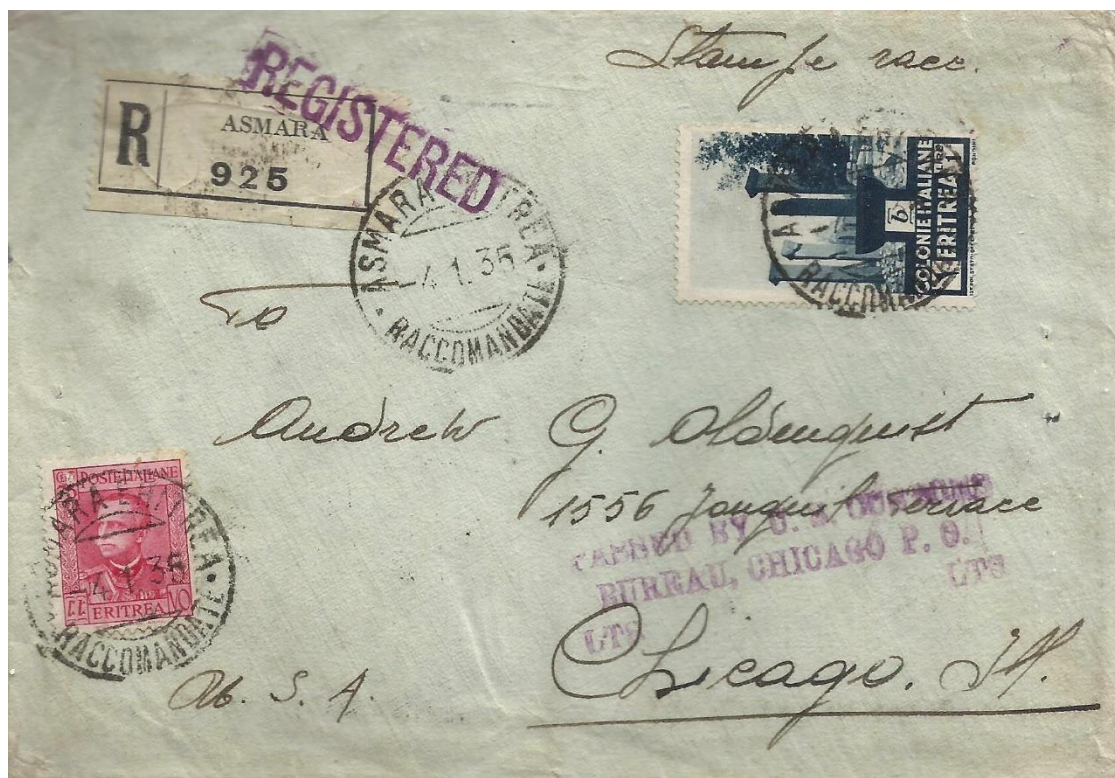 Stampe racc.
REGISTERED
R
ASMARA
925
ASMARA ERITREA
-4.1.35
RACCOMANDATE
COLONIE ITALIANE
ERITREA
LIRE 1
RACCOMANDATE
To
Andrew G. Oldenquist
1556 Jonquil Terrace
PASSED BY U. S. CUSTOMS
BUREAU, CHICAGO P. O.
LTS
LTS
Chicago. Ill.
U. S. A.
POSTE ITALIANE
ERITREA
ASMARA ERITREA
-4.1.35
RACCOMANDATE